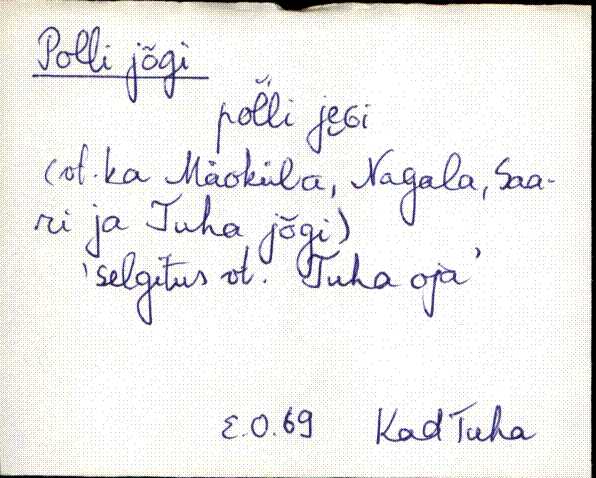 Polli jõgi
pol̆li je̮ɢi
(vt. ka Mäoküla, Nagala, Saa-
ri ja Tuha jõgi)
'selgitus vt. Tuha oja'
E.O.69 Kad Tuha